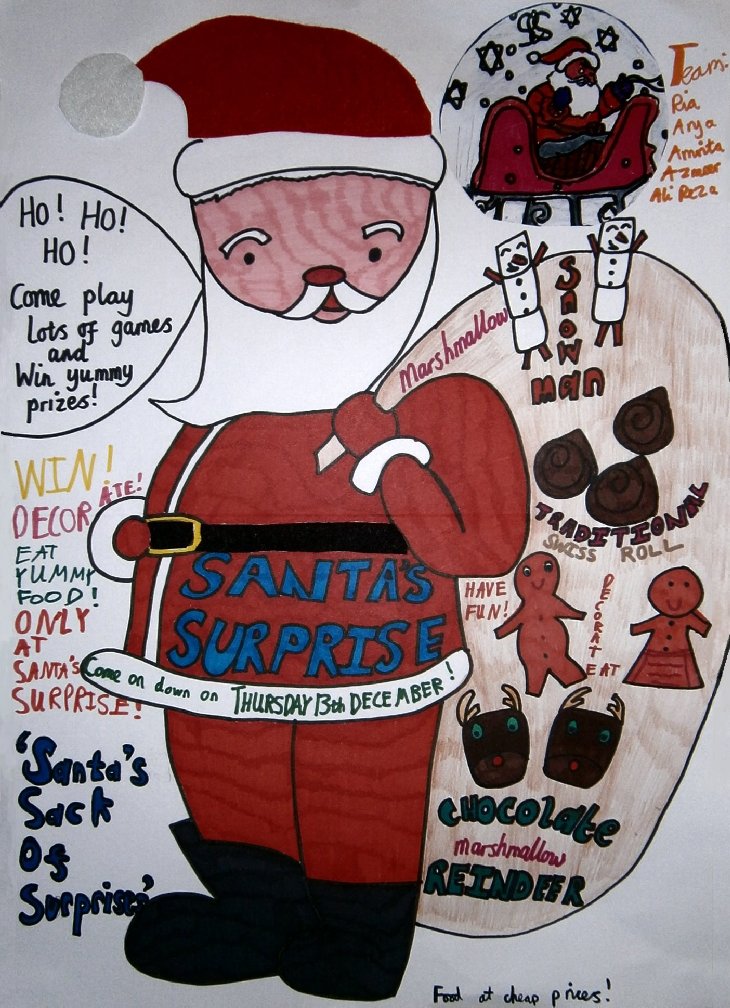 SS
Team:
Ria
Arya
Amrita
Azmeer
Ali Reza
HO! HO!
HO!
Come play
Lots of games
and
Win yummy
prizes!
Marshmallow
Snow
man
TRADITIONAL
SWISS ROLL
WIN!
DECORATE!
EAT
YUMMY
FOOD!
ONLY
AT
SANTA'S
SURPRISE!
SANTA'S
SURPRISE
Come on down on THURSDAY 13th DECEMBER!
HAVE
FUN!
DECORATE
EAT
'Santa's
Sack
Of
Surprises'
CHOCOLATE
marshmallow
REINDEER
Food at cheap prices!